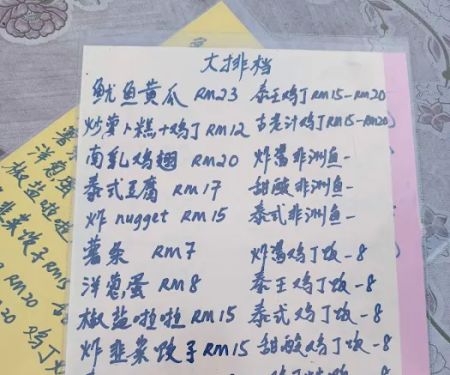 大排档
鱿鱼黄瓜 RM23 泰王鸡丁 RM15-RM20
炒萝卜糕+鸡丁 RM12 古老汁鸡丁 RM15-RM20
南乳鸡翅 RM20 炸酱非洲鱼-
泰式豆腐 RM17 甜酸非洲鱼-
炸 nugget RM15 泰式非洲鱼-
薯条 RM7 炸酱鸡丁饭-8
洋葱蛋 RM8 泰王鸡丁饭-8
椒盐啦啦 RM15 泰式鸡丁饭-8
炸韭菜饺子 RM15 甜酸鸡丁饭-8
薯
洋葱蛋
椒盐啦啦
韭菜饺子 RM15
RM20
鸡丁